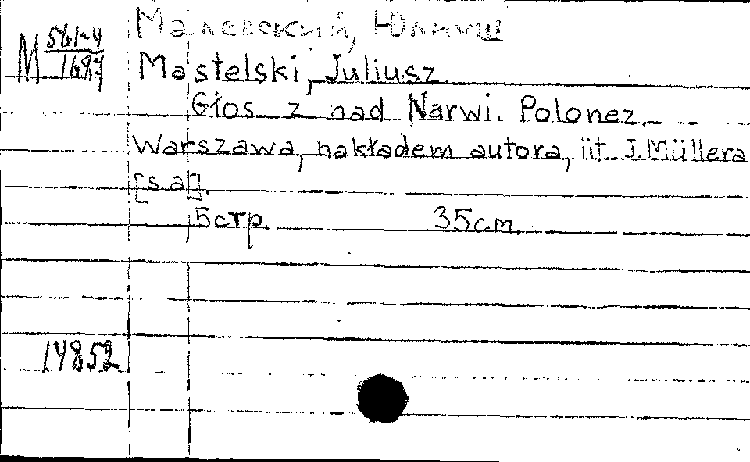 Юлиуш
М 561-4
Mastelski, Juliusz
Głos z nad Narwi. Polonez.
Warszawa, nakładem autora, lit. J. Müllera
[s.a].
5 стр. 35 cm.
14852